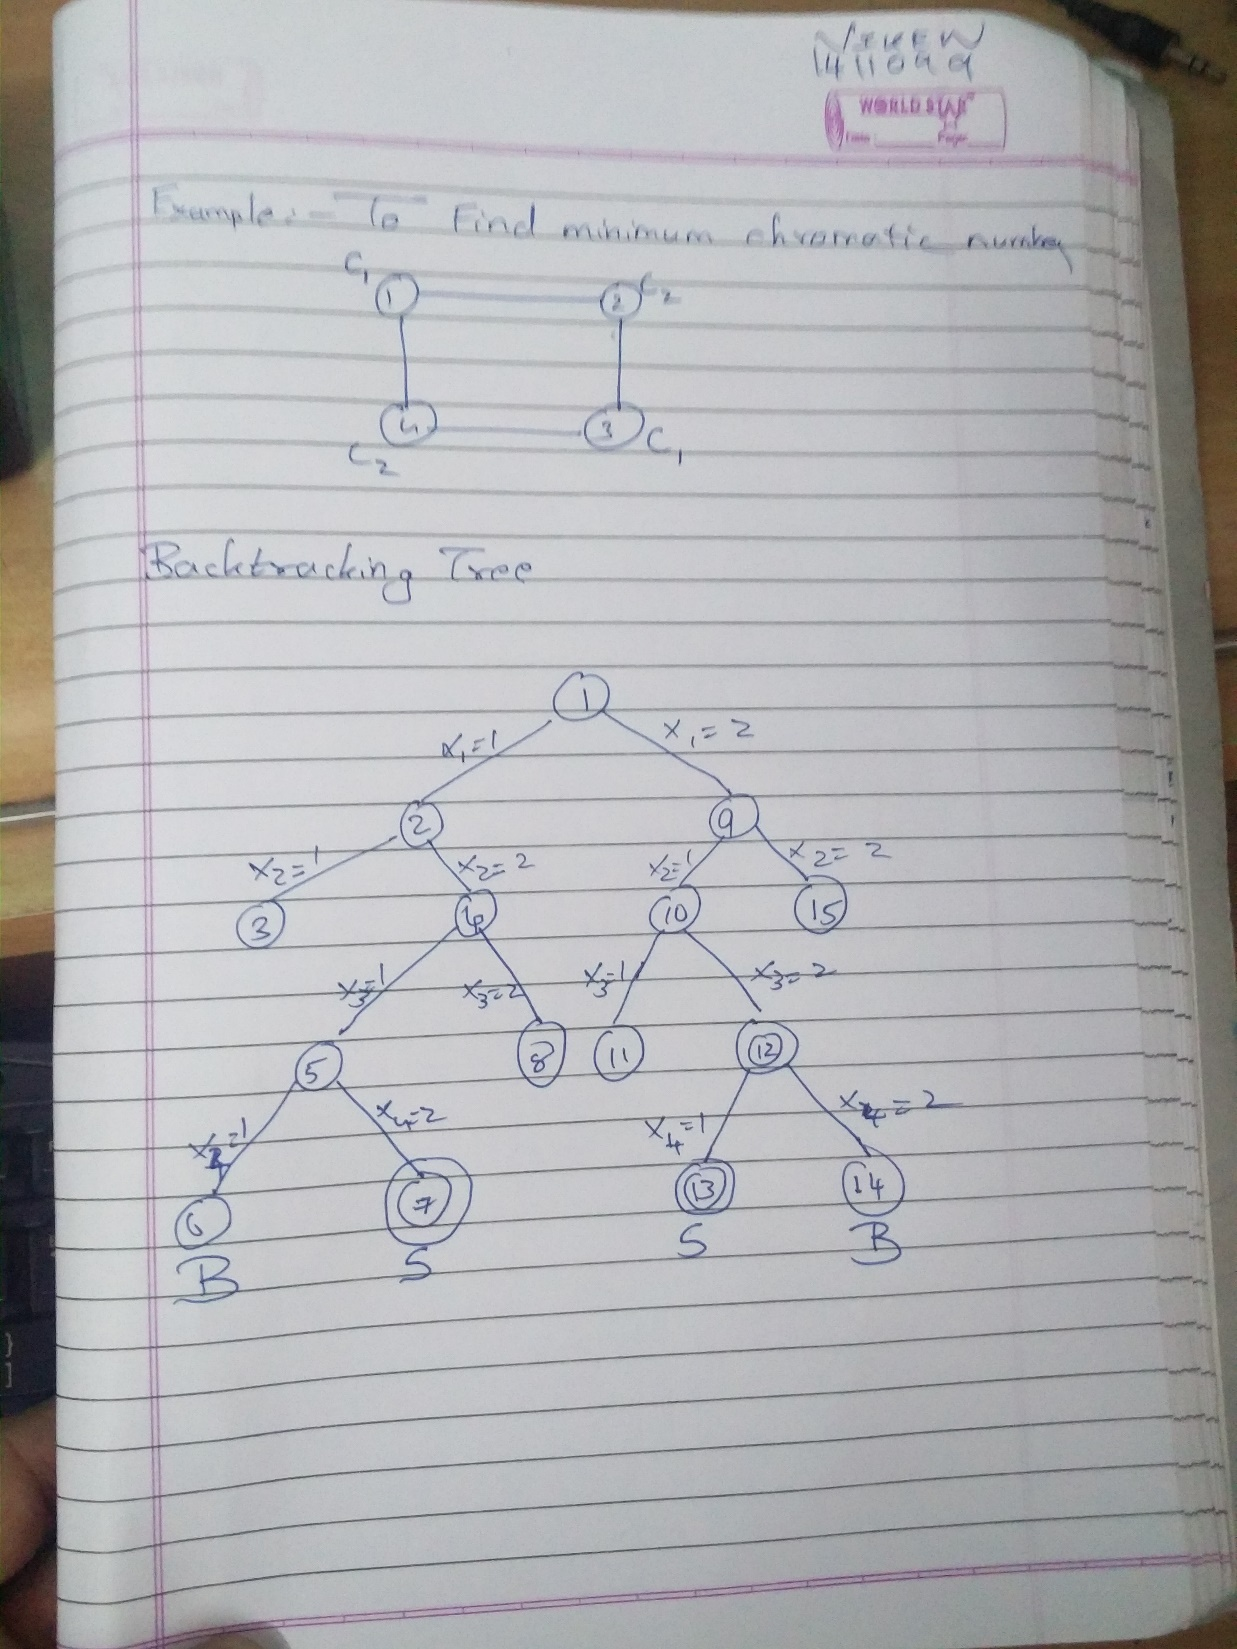 NIKEN
1411099
WORLD STAR
Date Page
Example:- To Find minimum chromatic number
C1 1 2 C2
4 3 C1
C2
Backtracking Tree
1
x1=1 x1=2
2 9
x2=1 x2=2 x2=1 x2=2
3 4 10 15
x3=1 x3=2 x3=1 x3=2
5 8 11 12
x4=2 x4=1 x4=2
=1
6 7 13 14
B S S B